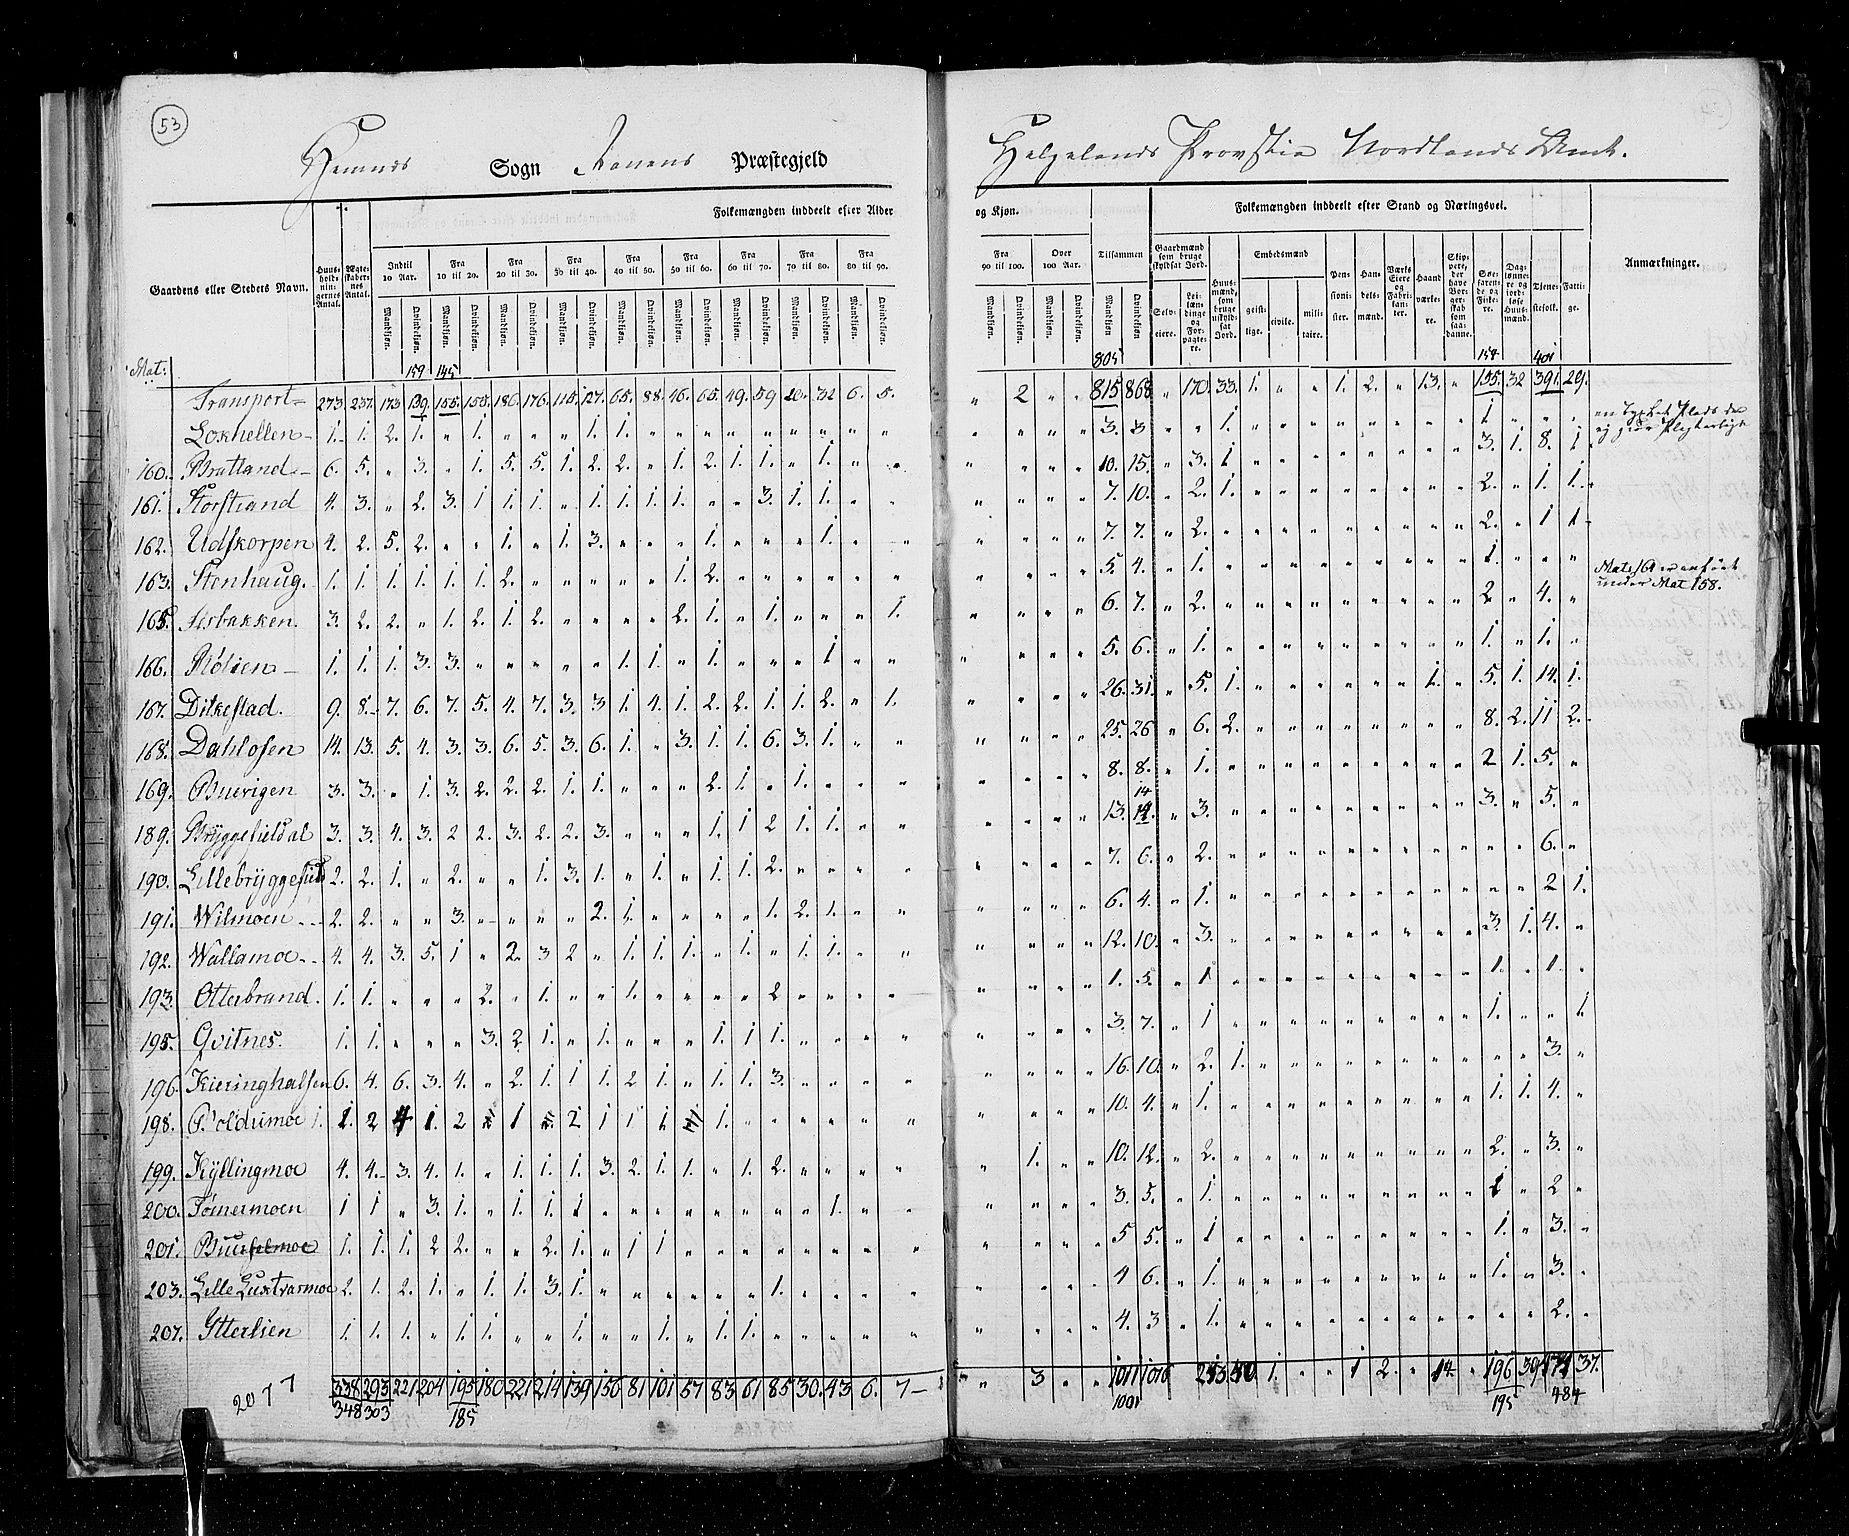 53
Hemnes Sogn Ranens Præstegjeld
Helgelands Provstie Nordlands Amt.
Folkemængden inddeelt efter Alder
og Kjøn.
Folkemængden inddeelt efter Stand og Næringsvei.
Gaardens eller Stedets Navn.
Huus-holdnin-gernes Antal.
Ægte-skaber-nes Antal.
Indtil 10 Aar.
Fra 10 til 20.
Fra 20 til 30.
Fra 30 til 40.
Fra 40 til 50.
Fra 50 til 60.
Fra 60 til 70.
Fra 70 til 80.
Fra 80 til 90.
Fra 90 til 100.
Over 100 Aar.
Tilsammen
Mandkjøn. Qvindekjøn.
Gaardmænd som bruge skyldsat Jord.
Selv-eiere.
Lei-lændinge og For-pagte-re.
Huus-mænd, som bruge uskyld-sat Jord.
Embedsmænd
geist-lige. civile. mili-taire.
Pen-sioni-ster.
Han-dels-mænd.
Værks Eiere og Fabri-kan-ter.
Haand værke-re.
Søe-farende og Fiske-re.
Dag-lønne-re og jord-løse Huus-mænd.
Tjene-stefolk.
Fatti-ge.
Anmærkninger.
Mat:
159 145 805 154 401
Transport 273. 237. 173 139. 155. 155. 186. 176. 115. 127. 65. 88. 46. 65. 49. 59 20. 32 6. 5. „ 2 „ „ 815 868 „ 170. 33. 1. „ „ 1. 2. „ 13. „ 155. 32 391. 29.
1. 1. 2. 1. „ 1. „ „ „ 1. 1. 3. 3 1. 1
160. Bratland 6. 5. „ 3. „ 1. 5. 5. 1. 2. 2. „ 1. 2. 1. 1. „ 1. „ „ 10. 15. „ 3. 1 3. 1. 8. 1
161. Storstrand 4. 3. „ 2. 3. 1 1. 1. „ 1. 1. 1. 1. „ „ 3. 1. 1. 7. 10. „ 2. 1. 2. „ 1. 1.
162. Udskorpen 4. 2. 5. 2. „ „ 1. „ 1. 3. „ „ „ 1. „ „ „ 1. 7. 7. „ 2. 2. „ 1 1
163. Stenhaug. 1. 1. 1. 1. 1. 1. 2. „ „ „ „ „ 1. 2. 5. 4. „ 1. 1.
Mat: 164 er anført
under Mat 158.
165. 3. 2. 2. „ 1. 2. 1. 2. „ „ „ „ 2. 1. „ 1. „ „ „ 1. 6. 7. „ 2. 2 „ 4. „
166. 1. 1. 1. 3. 3. „ „ „ „ „ 1. 1. „ 1. „ „ „ 1 5. 6. „ 1. 1. „ 1. „
167. Dilkestad. 9. 8. 7. 6. 7. 5. 4. 7. 3. 3 1. 4. 1. 2. 2. 1. 1. 2. „ 1. 26. 31. „ 5. 1. 1. „ 5. 1. 14. 1.
168. Dahlosen 14. 13. 5. 4. 3. 3. 6. 5. 3. 6. 1. „ 3. 1. 1. 6. 3. 1. „ „ 25. 26 „ 6. 2. 8. 2. 11 2.
169. Buerigen 3. 3. „ 1. 3. 2. 2. 2. 1. 1. „ „ „ 2. 1. „ 1. 8. 8. „ 1. 2 1. 5. „
189. Bryggefieldal 3. 3. 4. 3. 2 2. 3. 2. 2. 3. „ „ „ 1. 1 2 1. 1. „ „ 13. 14. „ 3. 3. „ 5. „
190. Lillebryggefield 2. 2. 1. „ 2. „ „ 1. 3. 1. „ 1. „ 1. 1. 2. 7. 6. „ 2. 6. „
191. Wilmoen 2. 2. „ „ 3. „ „ „ „ 2. 1. „ „ „ „ 1. 2. 1. „ „ 6. 4. „ 1. 2 1.
192. Wallamoe 4. 4. 3. 5. 1 „ 2. 3 2 „ 1. 1. 1. „ 1. „ 1. 1. „ „ 12. 10. „ 3. 3. 1. 4. „
193. Otterbrand. 1. 1. „ „ „ 2. „ 1. „ „ 1. „ „ „ „ 2 1. 5. „ 1 1. „ 1. „
195. Qvitnes. 1. 1. „ „ „ 3. 2 1. „ 1. „ „ „ 1. 1 1. 3. 7. „ 1 1. „ „ 1
196. Kieringhalsen 6. 4. 6. 3. 4. „ 2. 1. 1 1. 2 1. „ 1. 1. 3. 16. 10. „ 2. 1. 3. „
198. 1. 2 4 1. 2 „ 1 „ 2 1 1 1 1. 10. 4. „ 1. 1. 1. 4. „
199. Kyllingmoe 4. 4. 3. 4. 1. „ 1. 1. 1. 3. 2. 1. 1. „ 1. 2. „ 1. 10. 12. „ 2. 2. „ 3. „
200. Tømermoen 1 1 „ 3. 1. „ 1. 1. 1 „ „ „ „ „ „ „ „ 1. 3. 5. „ 1. 1 „ 2 „
201. 1. 1. 1. 2 2. „ „ 2. 1. „ 1 1 5 5. „ 1 1. „ 3. „
203. Lille Luxtvarmoe 2. 1. 2. 1. „ 1. 1. 3. 1. „ „ „ „ „ „ 1. 4 6. „ 1. 1. „ 3. „
207. Ytterlien 1. 1. 1. „ 1. 1. „ „ 1. „ „ 1. „ 1. 1. 4. 3 „ 1. 2. „
338 293 221 204 195 180 221 214 139 156 81 101 57 83 61 85 30. 43 6. 7 „ 3 „ „ 1011 1016 1. „ „ 1 2. „ 14. „ 196 39 37.
348 303 185 1001 195 484
2077